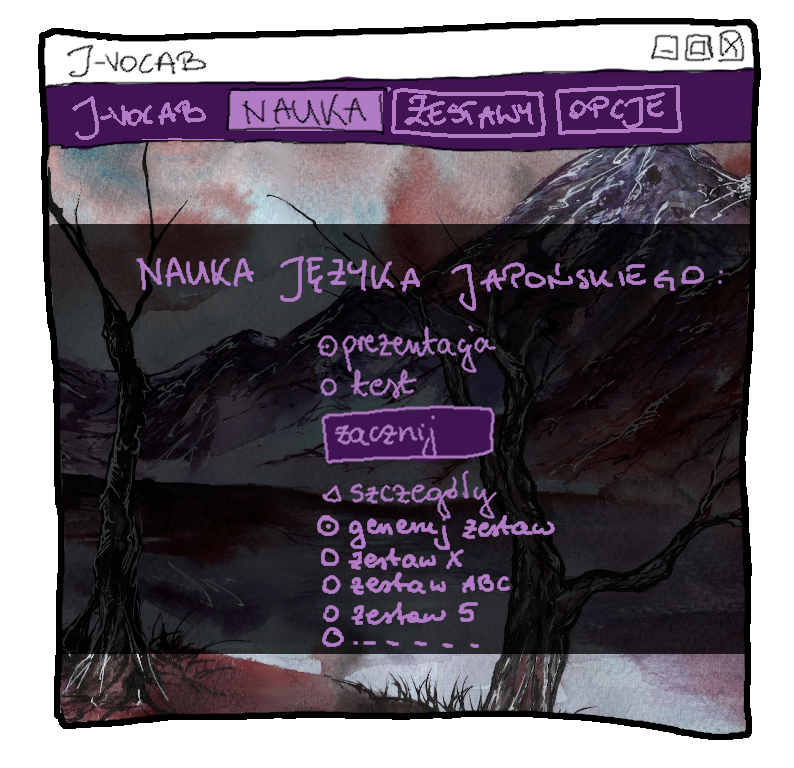 J-VOCAB
J-VOCAB NAUKA ZESTAWY OPCJE
NAUKA JĘZYKA JAPOŃSKIEGO:
prezentacja
test
zacznij
szczegóły
generuj zestaw
zestaw X
zestaw ABC
zestaw 5